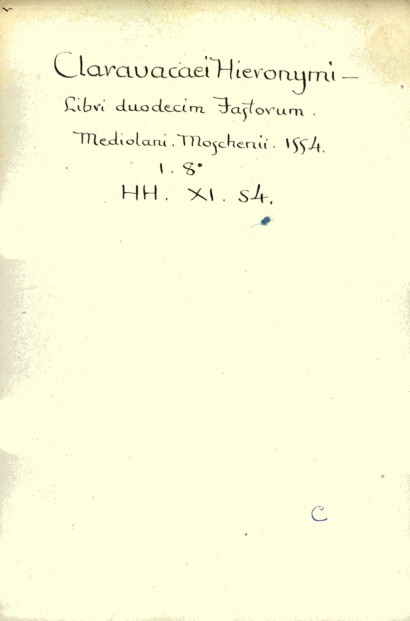 Claravacaei Hieronymi —
Libri duodecim Fastorum.
Mediolani. Moschenii. 1554.
1. 8°
HH. XI. 54.
C